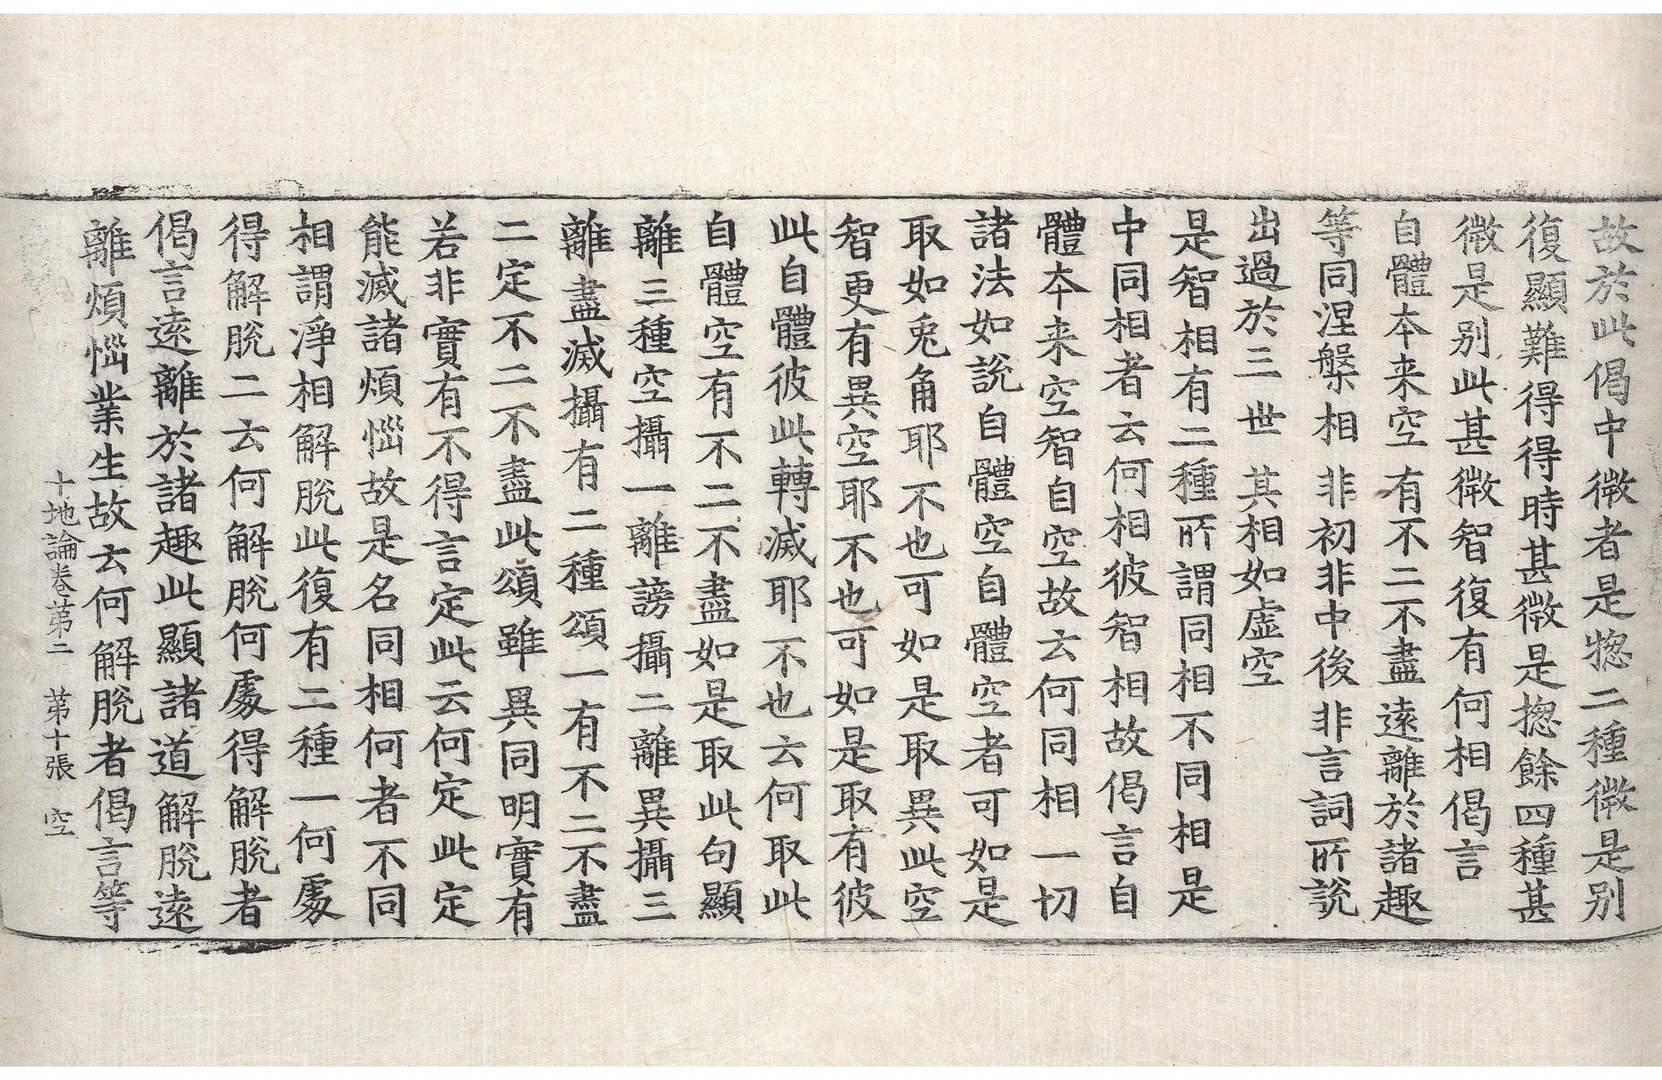 故於此偈中微者是揔二種微是別
復顯難得得時甚微是揔餘四種甚
微是别此甚微智復有何相偈言
自體夲来空 有不二不盡 遠離於諸趣
等同涅槃相 非初非中後 非言詞所說
出過於三世 其相如虛空
是智相有二種所謂同相不同相是
中同相者云何相彼智相故偈言自
體夲来空智自空故云何同相一切
諸法如說自體空自體空者可如是
取如兎角耶不也可如是取異此空
智更有異空耶不也可如是取有彼
此自體彼此轉滅耶不也云何取此
自體空有不二不盡如是取此句顯
離三種空攝一離謗攝二離異攝三
離盡滅攝有二種頌一有不二不盡
二定不二不盡此頌雖異同明實有
若非實有不得言定此云何定此定
能滅諸煩惱故是名同相何者不同
相謂淨相解脫此復有二種一何處
得解脫二云何解脫何處得解脫者
偈言遠離於諸趣此顯諸道解脫遠
離煩惱業生故云何解脫者偈言等
十地論卷第二 第十張 空